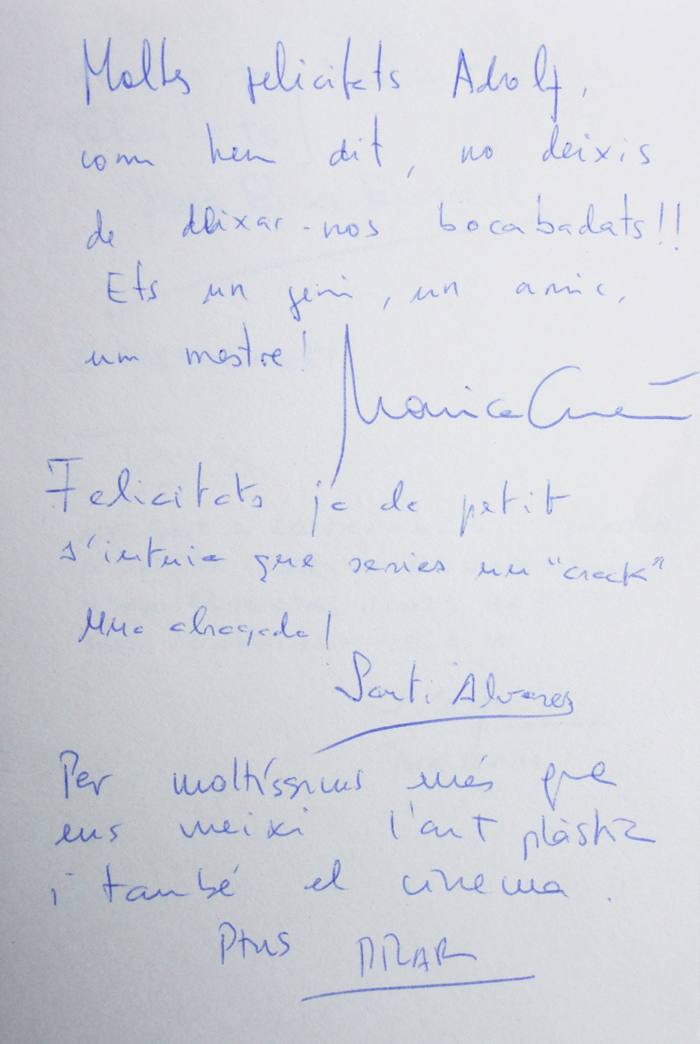 Moltes felicitats Adolf,
com hem dit, no deixis
de deixar-nos bocabadats!!
Ets un geni, un amic,
um mestre!
Monica
Felicitats ja de petit
s'intuia que series un "crack"
Una abraçada!
Santi Alvarez
Per moltíssims més que
ens uneixi l'art plàstic
i també el cinema.
Ptns PILAR